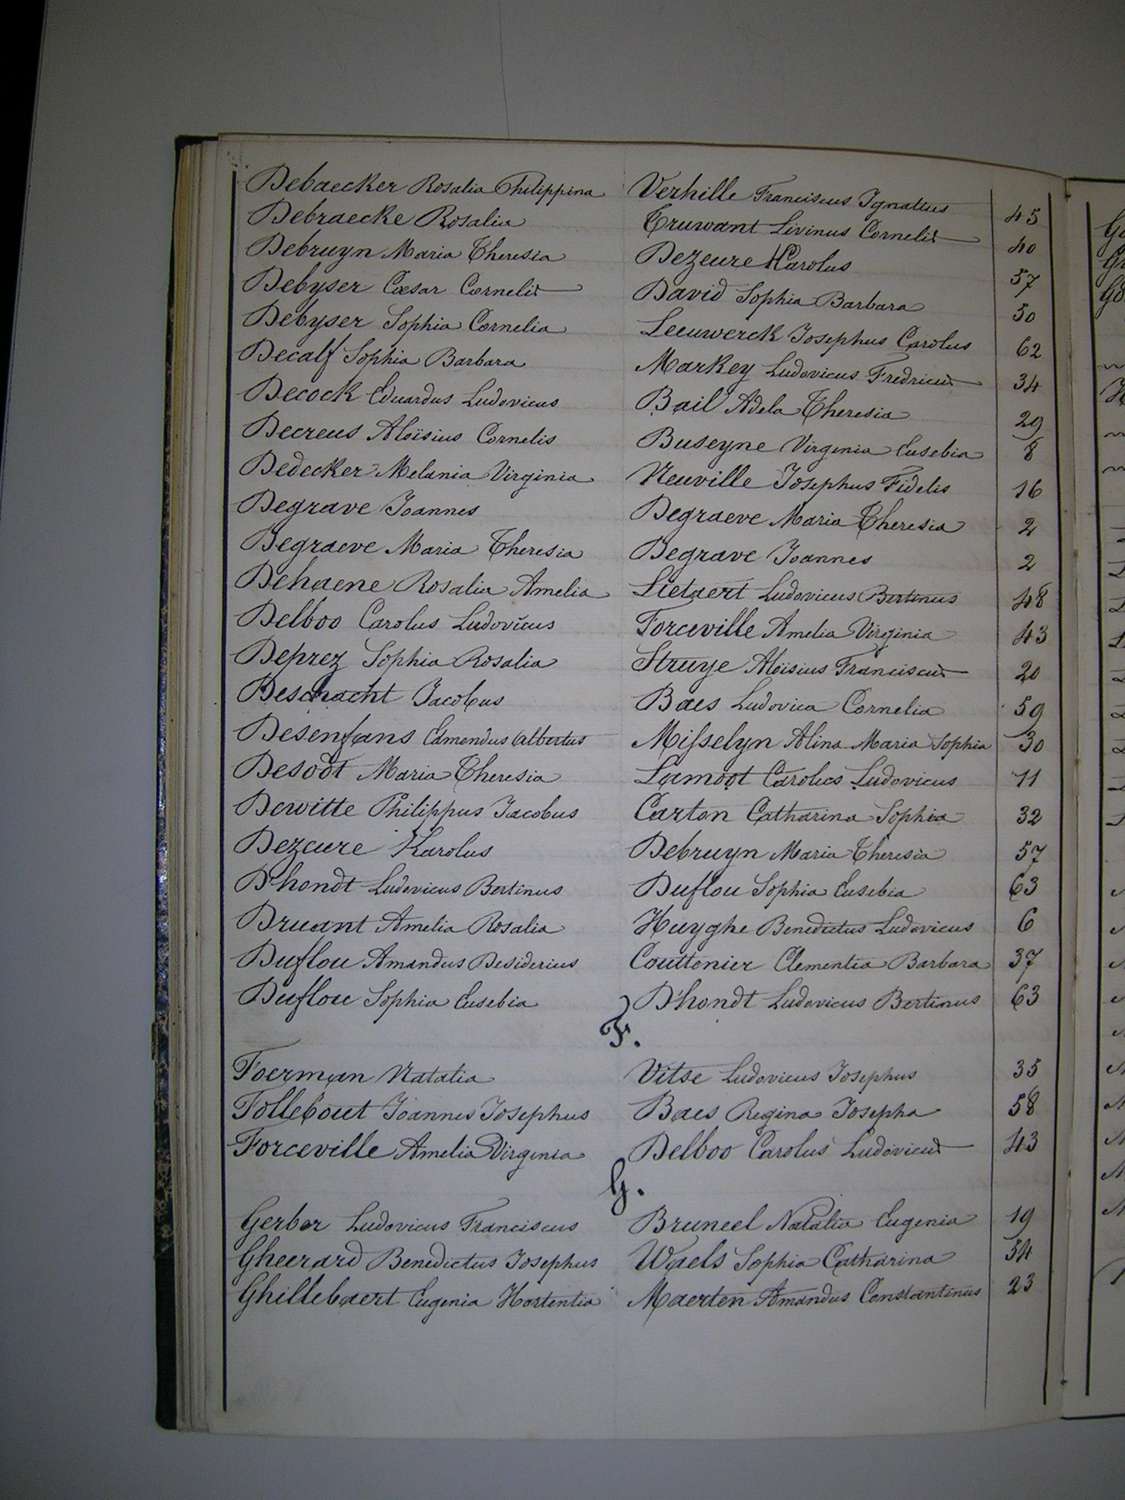 Debaecker Rosalia Philippina Verhille Franciscus Ignatius 45
Debraecke Rosalia Truwant Livinus Cornelis 40
Debruyn Maria Theresia Dezeure Karolus 57
Debyser Cæsar Cornelis David Sophia Barbara 50
Debyser Sophia Cornelia Leeuwerck Josephus Carolus 62
Decalf Sophia Barbara Markey Ludovicus Fredricus 34
Decock Eduardus Ludovicus Bail Adela Theresia 29
Decreus Aloïsius Cornelis Buseyne Virginia Eusebia 8
Dedecker Melania Virginia Neuville Josephus Fidelis 16
Degrave Joannes Degraeve Maria Theresia 2
Degraeve Maria Theresia Degrave Joannes 2
Dehaene Rosalia Amelia Lietaert Ludovicus Bertinus 48
Delboo Carolus Ludovicus Forceville Amelia Virginia 43
Deprez Sophia Rosalia Struye Aloisius Franciscus 20
Deschacht Jacobus Baes Ludovica Cornelia 59
Desenfans Edmondus Albertus Misselyn Alina Maria Sophia 30
Desodt Maria Theresia Lamoot Carolus Ludovicus 11
Dewitte Philippus Jacobus Carton Catharina Sophia 32
Dezeure Karolus Debruyn Maria Theresia 57
D'hondt Ludovicus Bertinus Duflou Sophia Eusebia 63
Druant Amelia Rosalia Huyghe Benedictus Ludovicus 6
Duflou Amandus Desiderius Couttenier Clementia Barbara 37
Duflou Sophia Eusebia D'hondt Ludovicus Bertinus 63
F.
Foerman Natalia Vitse Ludovicus Josephus 35
Follebout Joannes Josephus Baes Regina Josepha 58
Forceville Amelia Virginia Delboo Carolus Ludovicus 43
G.
Gerber Ludovicus Franciscus Bruneel Natalia Eugenia 19
Gheerard Benedictus Josephus Waels Sophia Catharina 54
Ghillebaert Eugenia Hortentia Maerten Amandus Constantinus 23